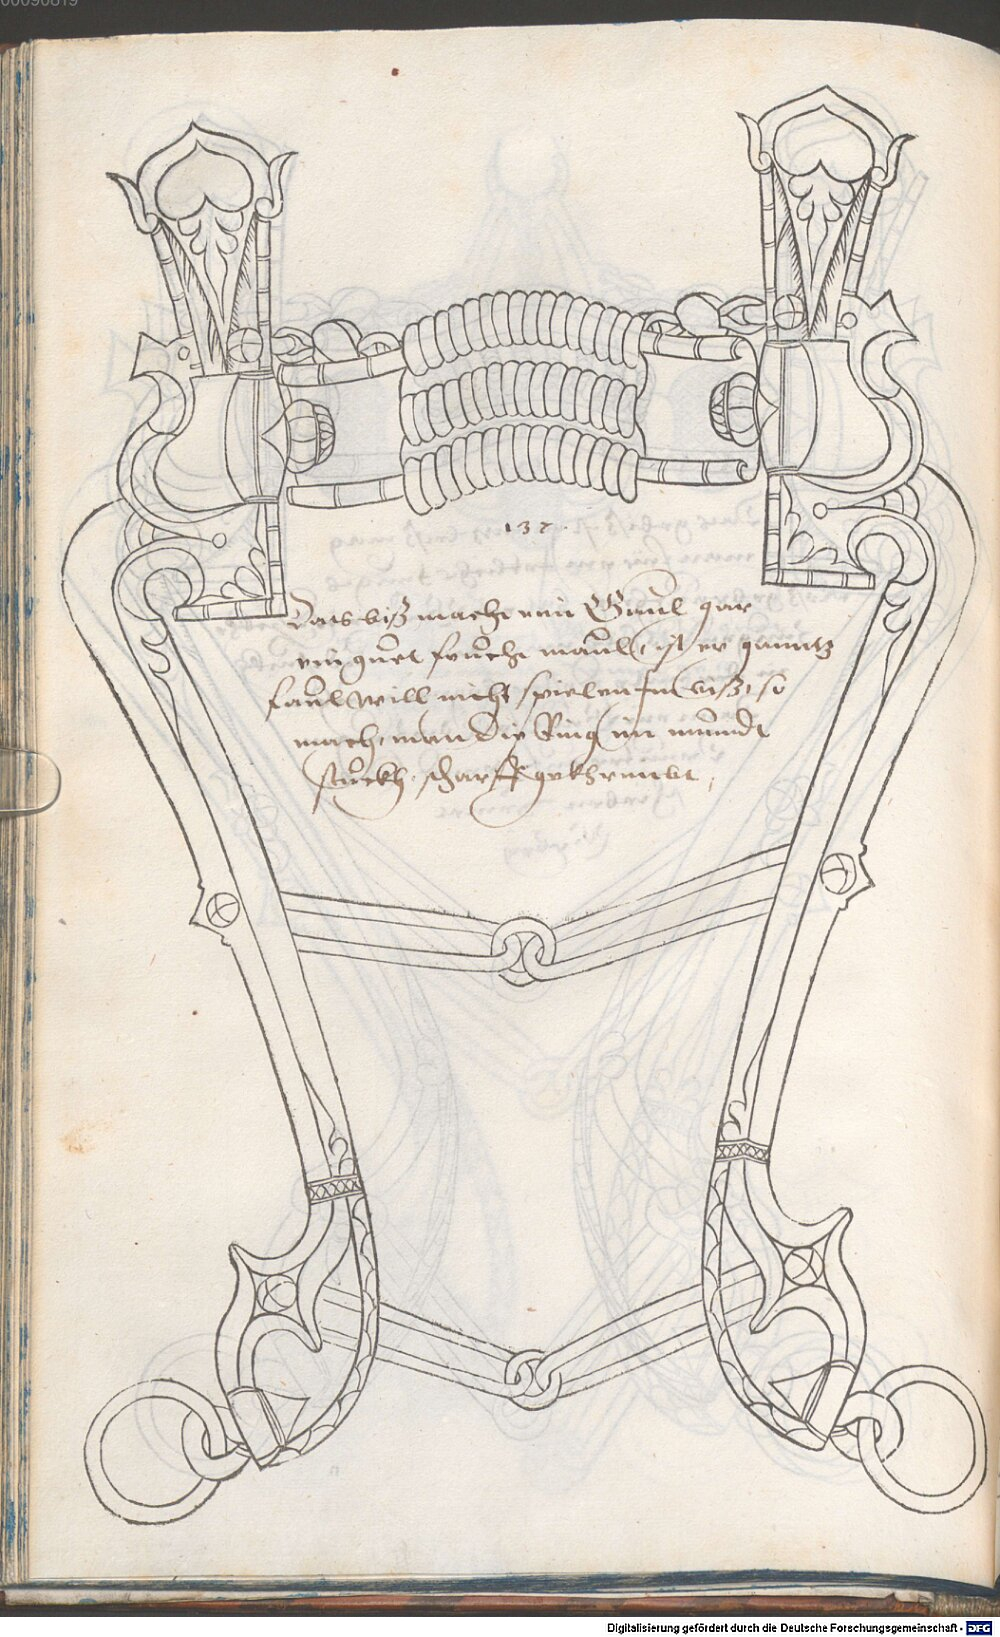 00090819
137.
Das biß macht eim Gaul gar
ein guet feucht maul, ist er ganntz
faul will nicht spielen Im biß, so
mach man die Ring im mund
stuckh scharff gekhrmbt,
Digitalisierung gefördert durch die Deutsche Forschungsgemeinschaft - DFG